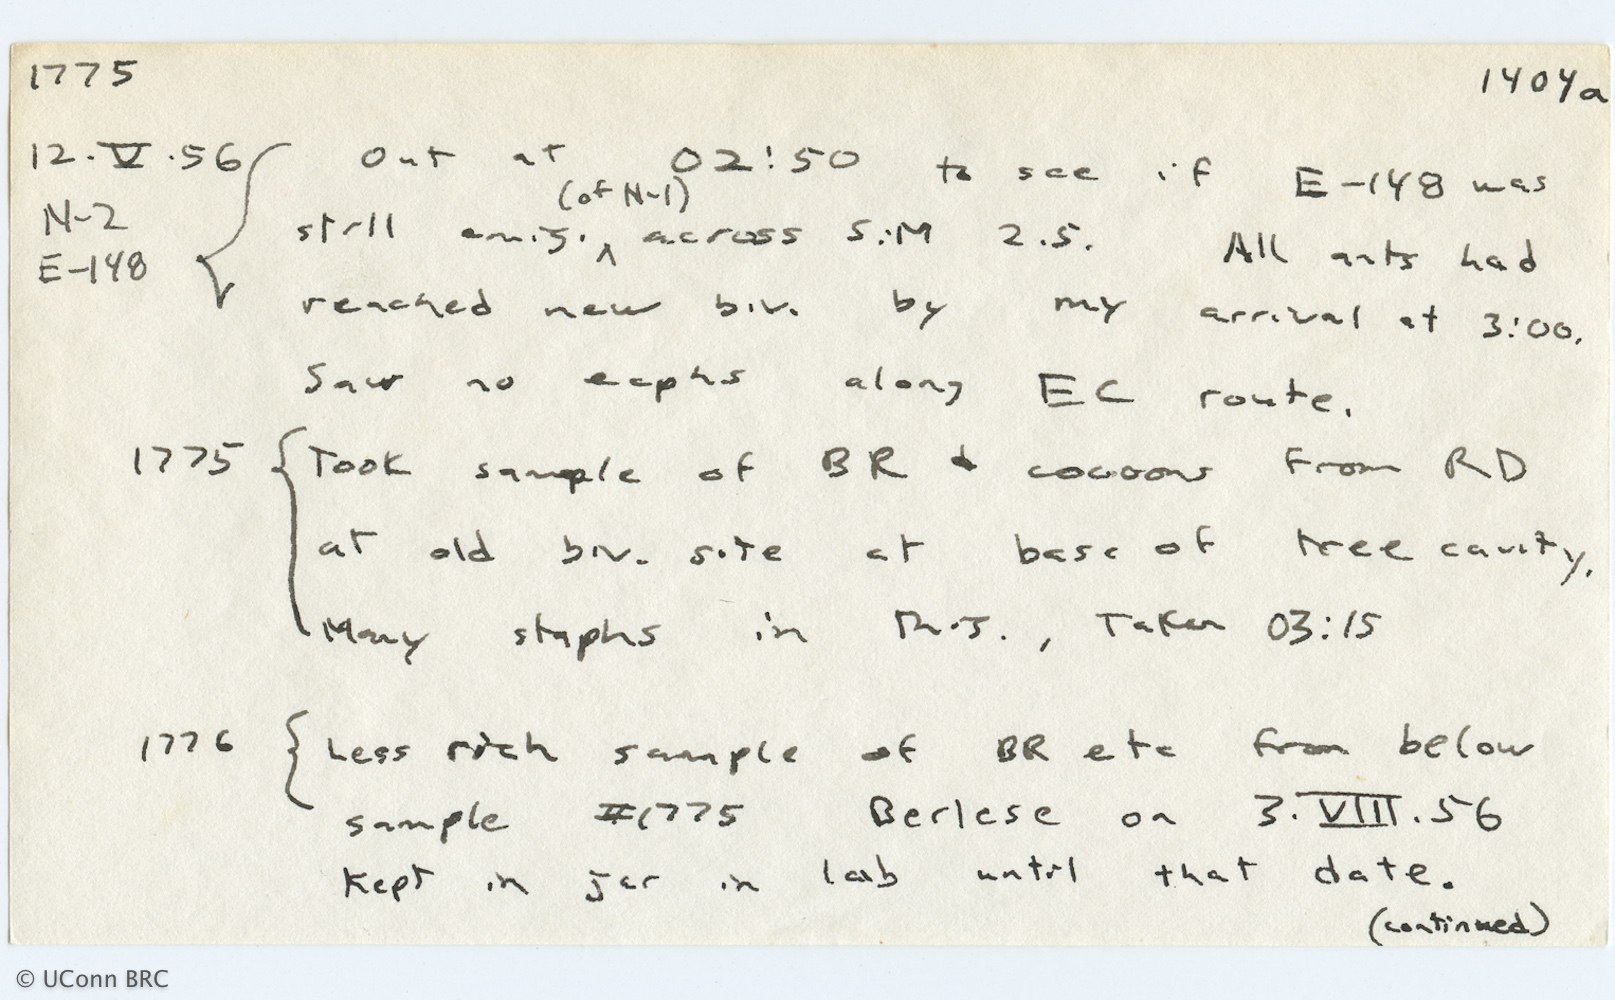 1775 1404a
12.V.56 Out at 02:50 to see if E-148 was
N-2 (of N-1)
E-148 still emig. ^ across S.M 2.5. All ants had
reached new biv. by my arrival at 3:00.
Saw no ecphs along EC route.
1775 { Took sample of BR & cocoons from RD
at old biv. site at base of tree cavity.
Many staphs in this., Taken 03:15
1776 { Less rich sample of BR etc from below
sample #1775 Berlese on 3.VIII.56
Kept in jar in lab until that date.
(continued)
© UConn BRC